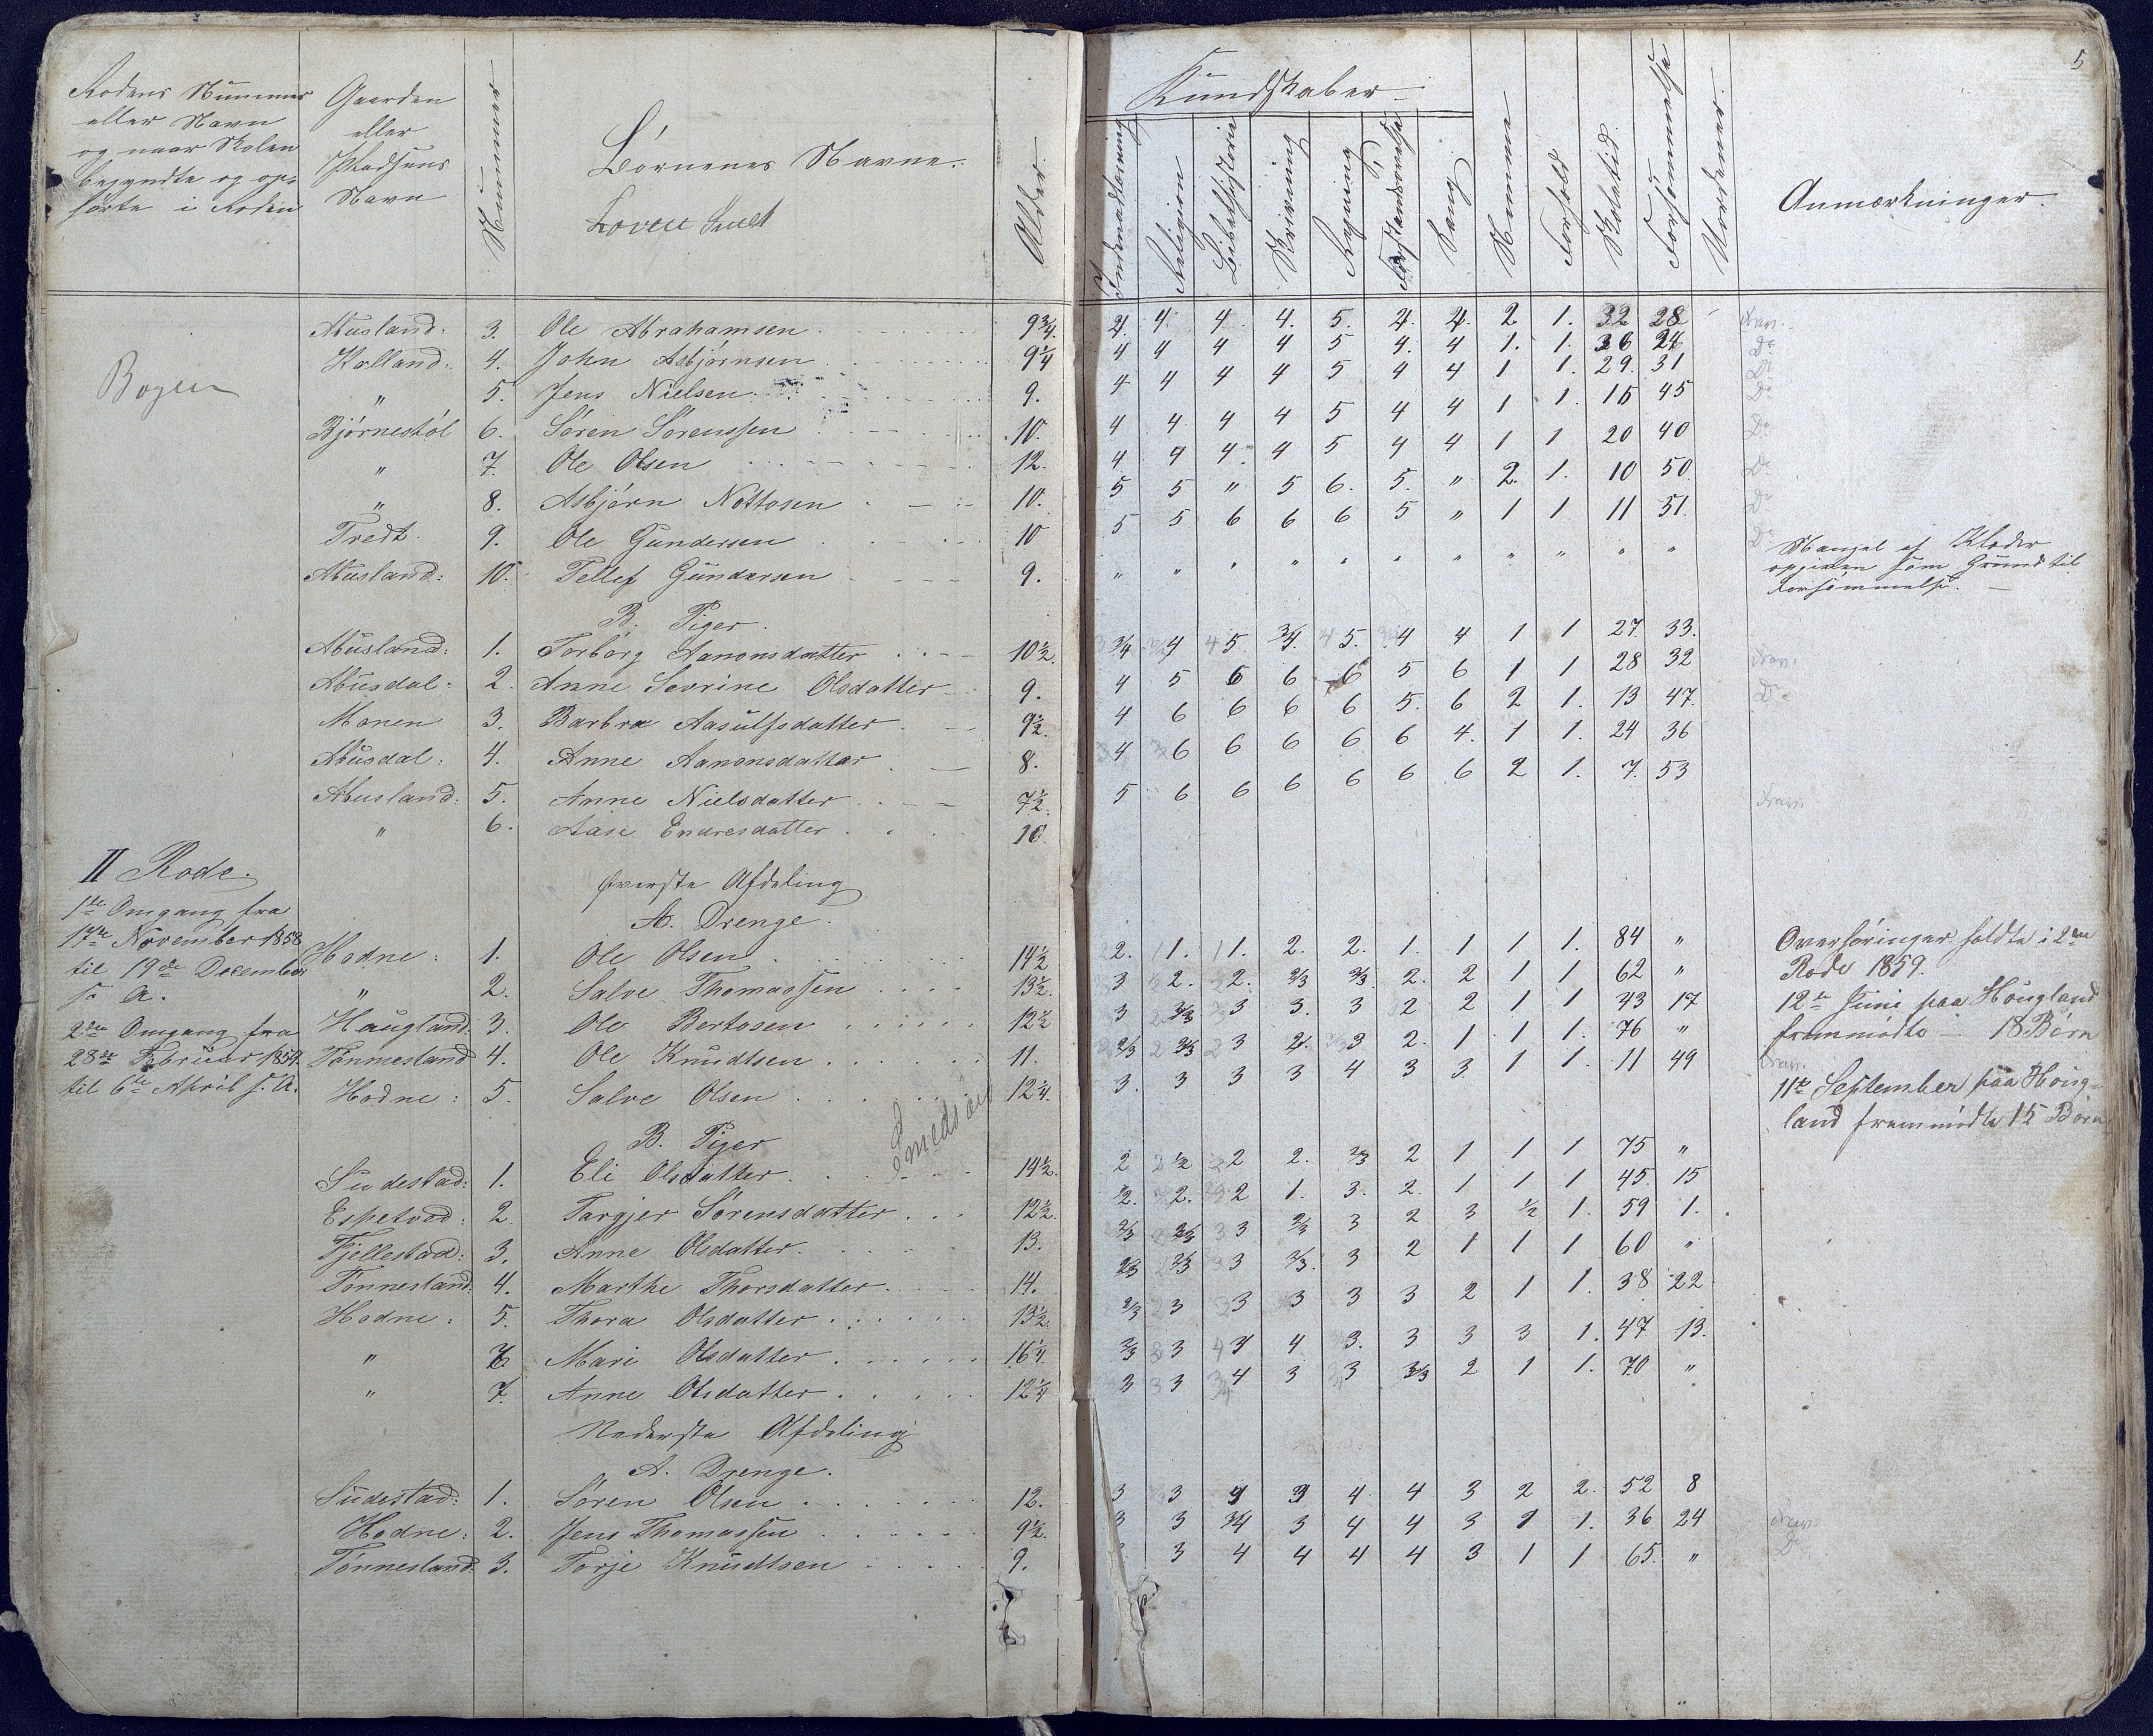 5
Rodens Nummer
eller Navn
og naar Skolen
begyndte og op-
hørte i Roden
Gaarden
eller
Pladsens
Navn
Nummer
Børnenes Navne.
Alder.
Kundskaber
Indenadlæsning
Religion
Bibelhistorie
Skrivning
Regning
Forstandsøvelse
Sang
Nemme
Forhold
Skoletid
Forsømmelse
Anmærkninger.
Bogen
Abusland: 3. Ole Abrahamsen 9 3/4. 4. 4. 4. 4. 5. 4. 4. 2. 1. 32 28
Kalland: 4. John Asbjørnsen 9 1/4 4 4 4 4 5 4. 4 1. 1. 36 24 Do
" 5. Jens Nielsen 9. 4 4 4 4 5 4 4 1 1. 29. 31 Do
Bjørnestøl 6. Søren Sørenssen 10. 4 4 4 4 5 4 4 1 1. 15 45 Do
" 7. Ole Olsen 12. 4 4 4. 4 5 4 4 1 1 20 40 Do
" 8. Asbjørn Nottosen 10. 5 5 " 5 6. 5. " 2. 1. 10 50 Do
Tredt. 9. Ole Gundersen 10 5 5 6 6 6 5 " 1 1 11 51. Do
Abusland: 10. Tellef Gundersen 9. " " " " " " " " " " " Do
Mangel af Klæder
opgiven som Grund til
Forsømmelse.
B. Piger.
Abusland: 1. Torborg Aanonsdatter 10 1/2. 3/4 4 5. 3/4. 5. 4 4 1 1 27. 33.
Abusdal: 2. Anne Sevrine Olsdatter 9. 4 5 6 6 6 5 6 1 1 28 32
Monen 3. Barbra Aasulfsdatter 9 1/2. 4 6 6 6 6 5. 6 2 1. 13 47.
Abusdal: 4. Anne Aanonsdatter 8. 4 6 6 6 6 6 4. 1 1. 24 36
Abusland: 5. Anne Nielsdatter 7 1/2. 5 6 6 6 6 6 6 2 1. 7. 53
" 6. Aase Endresdatter 10
II Rode.
1ste Omgang fra
17de November 1858
til 19de December
s. A.
2den Omgang fra
28de Februar 1859.
til 6te April s. A.
Øverste Afdeling
A. Drenge.
Hodne: 1. Ole Olsen 14 1/2 2. 1. 1. 2. 2. 1. 1 1 1. 84 "
" 2. Salve Thomassen 13 1/2. 3 2. 2. 2/3 2/3. 2. 2 1 1 62 "
Haugland: 3. Ole Bertosen 12 1/2 3 2/3 3 3. 3 2 2 1 1 43 17
Tønnesland 4. Ole Knudtsen 11. 2/3 2/3 3 2. 3 2. 1 1 1. 76 "
Hodne: 5. Salve Olsen 12 1/4. 3. 3 3 3 4 3 3 1 1. 11 49
Overhøringer holdte i 2den
Rode 1859.
12te Juni paa Hougland
fremmødte — 18 Børn
11te September paa Houg-
land fremmødte 15 Børn
B. Piger
Sudestad: 1. Eli Olsdatter 14 1/2. 2 1/2 2 2. 2/3 2 1 1 1 75 "
Espetved: 2. Targjer Sørensdatter 12 1/2. 1/2. 2. 2 1. 3. 2. 1 1 1 45. 15
Fjellestad: 3. Anne Olsdatter. 13. 2/3 2/3 3 2/3 3 2 3 1/2 1. 59 1.
Tønnesland: 4. Marthe Thorsdatter 14. 2/3 2/3 3 2/3. 3 2 1 1 1 60 "
Hodne: 5. Thora Olsdatter 13 1/2. 2/3 3 3 3 3 3 2 1 1. 38 22
" 6. Mari Olsdatter 16 1/4. 2/3 3 4 4 3. 3 3 3 1. 47 13.
" 7. Anne Olsdatter 12 1/4 3 3 4 3 3 2/3 2 1 1. 70 "
Nederste Afdeling
A. Drenge.
Sudestad: 1. Søren Olsen 12. 3 3 4 3 4. 4 3 2 2. 52 8
Hodne: 2. Jens Thomassen 9 1/2. 3 3 3/4 3 4 4 3 1 1. 36 24
Tønnesland: 3. Torje Knudtsen 9. 3 4 4 4 4 3 1 1 65. " Do